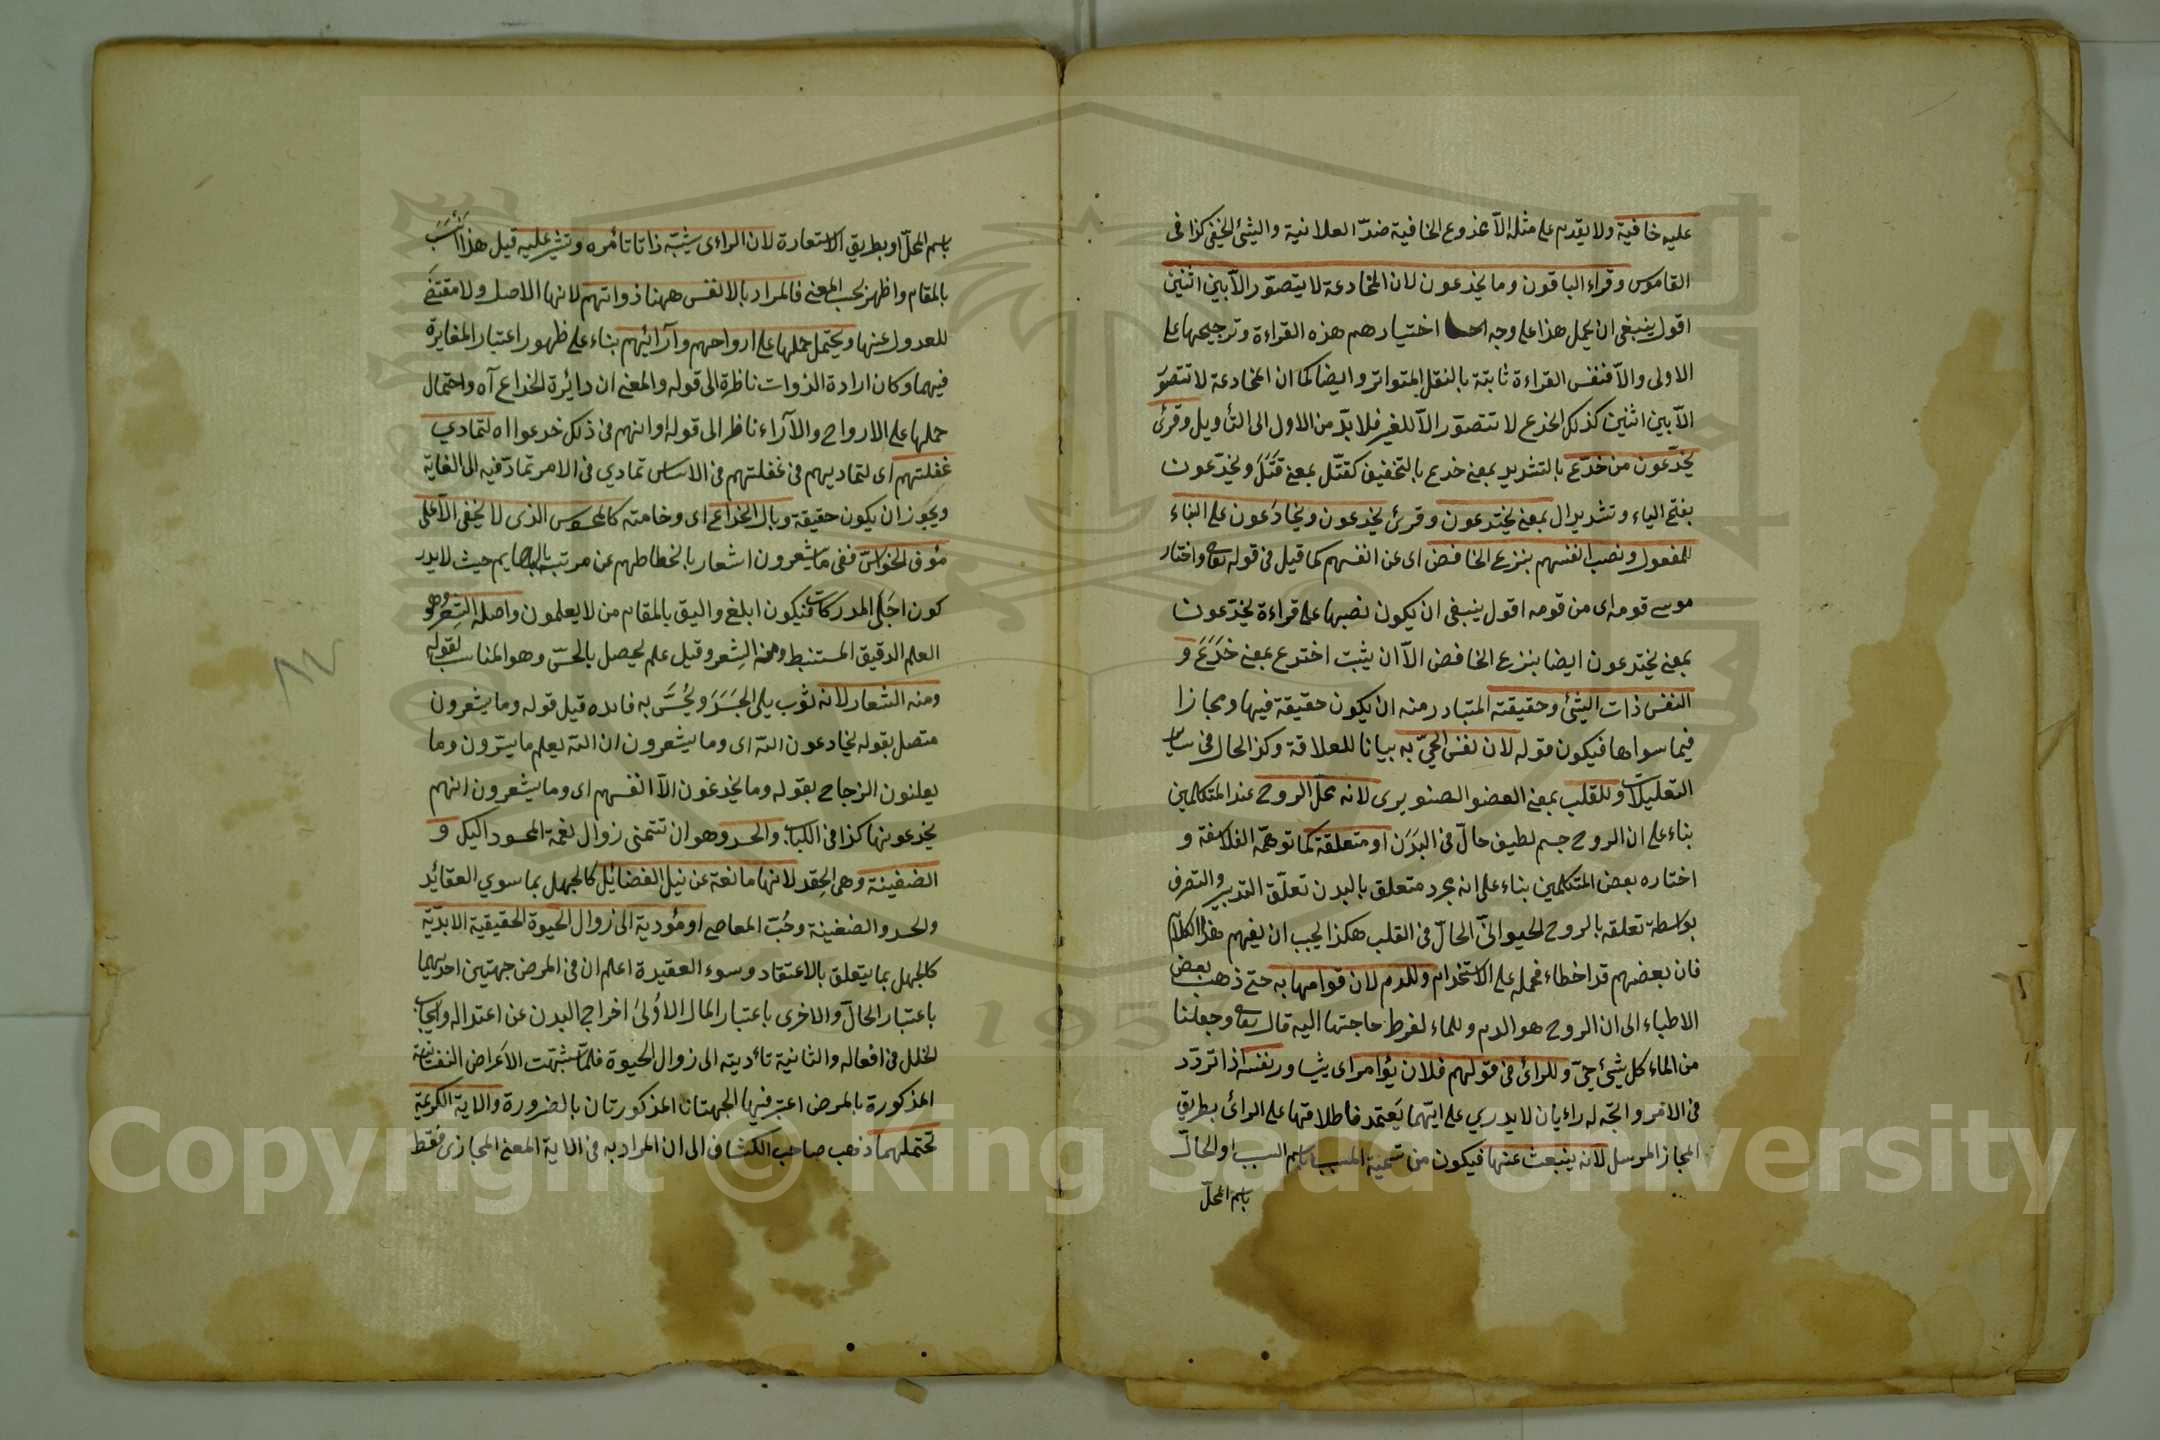 عليه خافية ولا يقدم على مثله الا مخدوع الخافية ضدّ العلانية والشئ الخفى كذا فى
القاموس وقراء الباقون وما يخدعون لان المخادعة لا يتصوّر الاّ بين اثنين
اقول ينبغى ان يحمل هذا على وجه اختيارهم هذه القراءة وترجيحها على
الاولى والاّ فنفس القراءة ثابتة بالنقل المتواتر وايضا كما ان المخادعة لا تتصوّر
الاّ بين اثنين كذلك الخدع لا تتصوّر الاّ للغير فلا بدّ من الاول الى التأويل وقرئ
يخدّعون من خدّع بالتشديد بمعنى خدع بالتخفيف كقتّل بمعنى قَتَلَ ويخدّعون
بفتح الياء وتشديد ال بمعنى يختدعون وقرئ يخدعون ويخادَعون على البناء
للمفعول ونصب انفسهم بنزع الخافض اى عن انفسهم كما قيل فى قوله تعالى واختار
موسى قومه اى من قومه اقول ينبغى ان يكون نصبها على قراءة يخدّعون
بمعنى يختدعون ايضا بنزع الخافض الاّ ان يثبت اختدع بمعنى خَدَعَ و
النفس ذات الشئ وحقيقته المتبادر منه ان يكون حقيقة فيها ومجازا
فيما سواها فيكون قوله لان نفس الحىّ به بيانا للعلاقة وكذا الحال فى سائر
التعليلات وللقلب بمعنى العضو الصنوبرى لانه محلّ الروح عند المتكلمين
بناء على ان الروح جسم لطيف حالّ فى البَدَن او متعلقة كما توهمّه الفلاسفة و
اختاره بعض المتكلمين بناء على انه مجرد متعلق بالبدن تعلّق التدبير والتصرف
بواسطة تعلقه بالروح الحيوانىّ الحالّ فى القلب هكذا يجب ان يفهم هذا الكلام
فان بعضهم قد اخطاء فحمله على الاستخدام وللدم لان قوامها به حتى ذهب بعض
الاطباء الى ان الروح هو الدم وللماء لفرط حاجتها اليه قال تعالى وجعلنا
من الماء كل شئ حىّ وللرائ فى قولهم فلان يؤامر اى يشاور نفسه اذا تردّد
فى الامر واتّجه له رايان لا يدرى على ايتهما يَعتمد فاطلاقها على الرائ بطريق
المجاز المرسل لانه ينبعث عنها فيكون من تسمية المسبب باسم السبب او الحالّ
باسم المحلّ
باسم المحلّ او بطريق الاستعارة لان الراءى يشبّه ذاتا تأمره وتشير عليه قيل هذا انْسَبَ
بالمقام واظهر بحسب المعنى فالمراد بالانفس ههنا ذواتهم لانها الاصل ولا مقتضَى
للعدول عنها ويحتمل حملها على ارواحهم وآرائهم بناء على ظهور اعتبار المغايرة
فيهما وكان ارادة الذوات ناظرة الى قوله والمعنى ان دائرة الخداع آه واحتمال
حملها على الارواح والآراء ناظر الى قوله وانهم فى ذلك خدعوا اه لتمادى
غفلتهم اى لتماديهم فى غفلتهم فى الاساس تمادى فى الامر تمادّ فيه الى الغاية
ويجوز ان يكون حقيقة وبال الخداع اى وخامته كالمحسوس الذى لا يخفى الاّ على
مؤف الحواسّ ففى ما يشعرون اشعار بانحطاطهم عن مرتبة البهايم حيث لا يدر
كون اجلَى المدركات فيكون ابلغ واليق بالمقام من لا يعلمون واصله الشِعْر وهو
العلم الدقيق المستنبط ومنه الشِعر وقيل علم يحصل بالحسّ وهو المناسب لقوله
ومنه الشعار لانه ثوب يلى الجَسَدَ ويُحَسُّ به فائده قيل قوله وما يشعرون
متصل بقوله يخادعون الله اى وما يشعرون ان الله يعلم ما يسرّون وما
يعلنون الزجاج بقوله وما يخدعون الاّ انفسهم اى وما يشعرون انهم
يخدعونها كذا فى اللباب والحسد وهو ان تتمنى زوال نعمة المحسود اليك و
الضغينة وهى الحِقد لانها مانعة عن نيل الفضائل كالجهل بما سوى العقائد
والحسد والضغينة وحُبّ المعاصى او مؤدية الى زوال الحيوة الحقيقية الابديّة
كالجهل بما يتعلق بالاعتقاد وسوء العقيدة اعلم ان فى المرض جهتين احديهما
باعتبار الحالّ والاخرى باعتبار المال الاُولىَ اخراج البدن عن اعتداله وايجاب
الخلل فى افعاله والثانية تأديته الى زوال الحيوة فلمّا شبّهت الاَعراض النفسانية
المذكورة بالمرض اعتبر فيها الجهتان المذكورتان بالضرورة والاية الكريمة
تحتملهما ذهب صاحب الكشاف الى ان المراد به فى الاية المعنى المجازى فقط